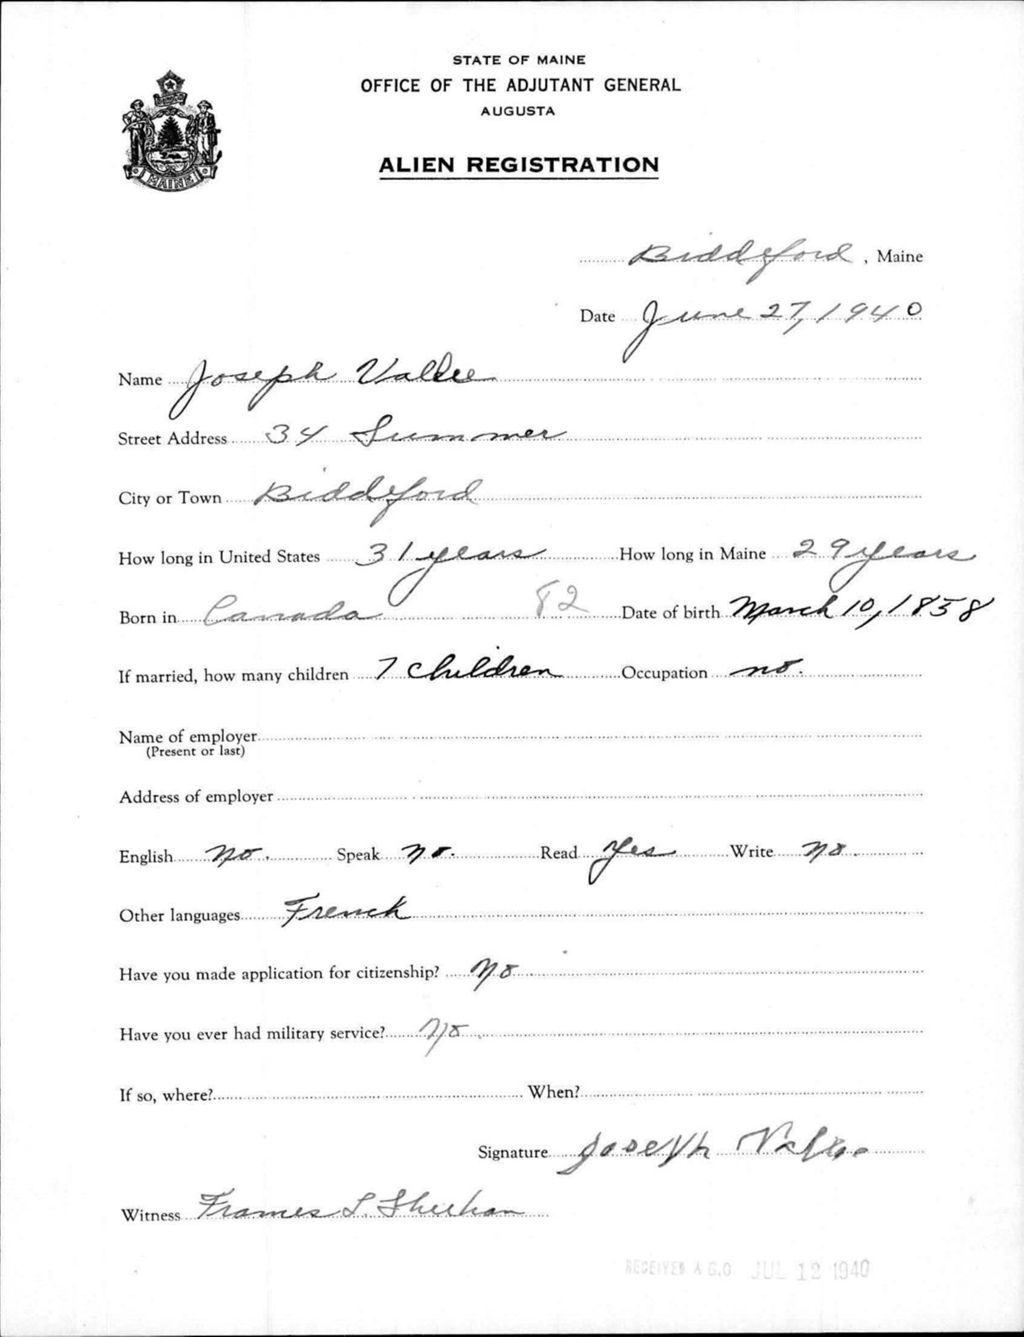 STATE OF MAINE
OFFICE OF THE ADJUTANT GENERAL
AUGUSTA
ALIEN REGISTRATION
MAINE
Biddeford, Maine
Date June 27, 1940
Name Joseph Vallee
Street Address 34 Summer
City or Town Biddeford
How long in United States 31 years How long in Maine 29 years
Born in Canada 82 Date of birth March 10, 1858
If married, how many children 7 children Occupation no.
Name of employer
(Present or last)
Address of employer
English No. Speak no. Read Yes Write No.
Other languages French
Have you made application for citizenship? No
Have you ever had military service? No
If so, where? When?
Signature Joseph Vallee
Witness Frances L. Sheehan
RECEIVED A.G.O. JUL 12 1940